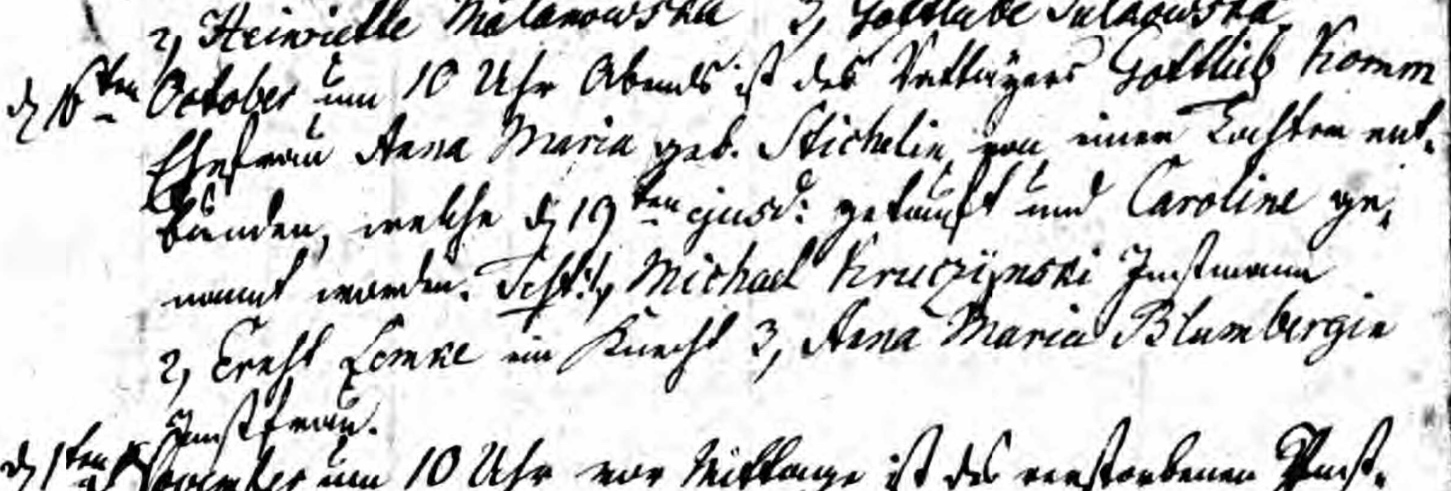 2, Heinriette Malanowska 3, Gottliebe Sulkowska
d 6ten October um 10 Uhr Abends ist des Gottlieb Komm
Ehefrau Anna Maria geb. Stichelin von einer Tochter ent-
bunden, welche d 19ten ejusd: getauft und Caroline ge-
nannt worden. Test: 1, Michael Kruczÿnski Instmann
2, Ernst Lemke ein Knecht 3, Anna Maria Blumbergin
Instfrau.
d 1ten November um 10 Uhr vor Mittage ist des verstorbenen Inst-